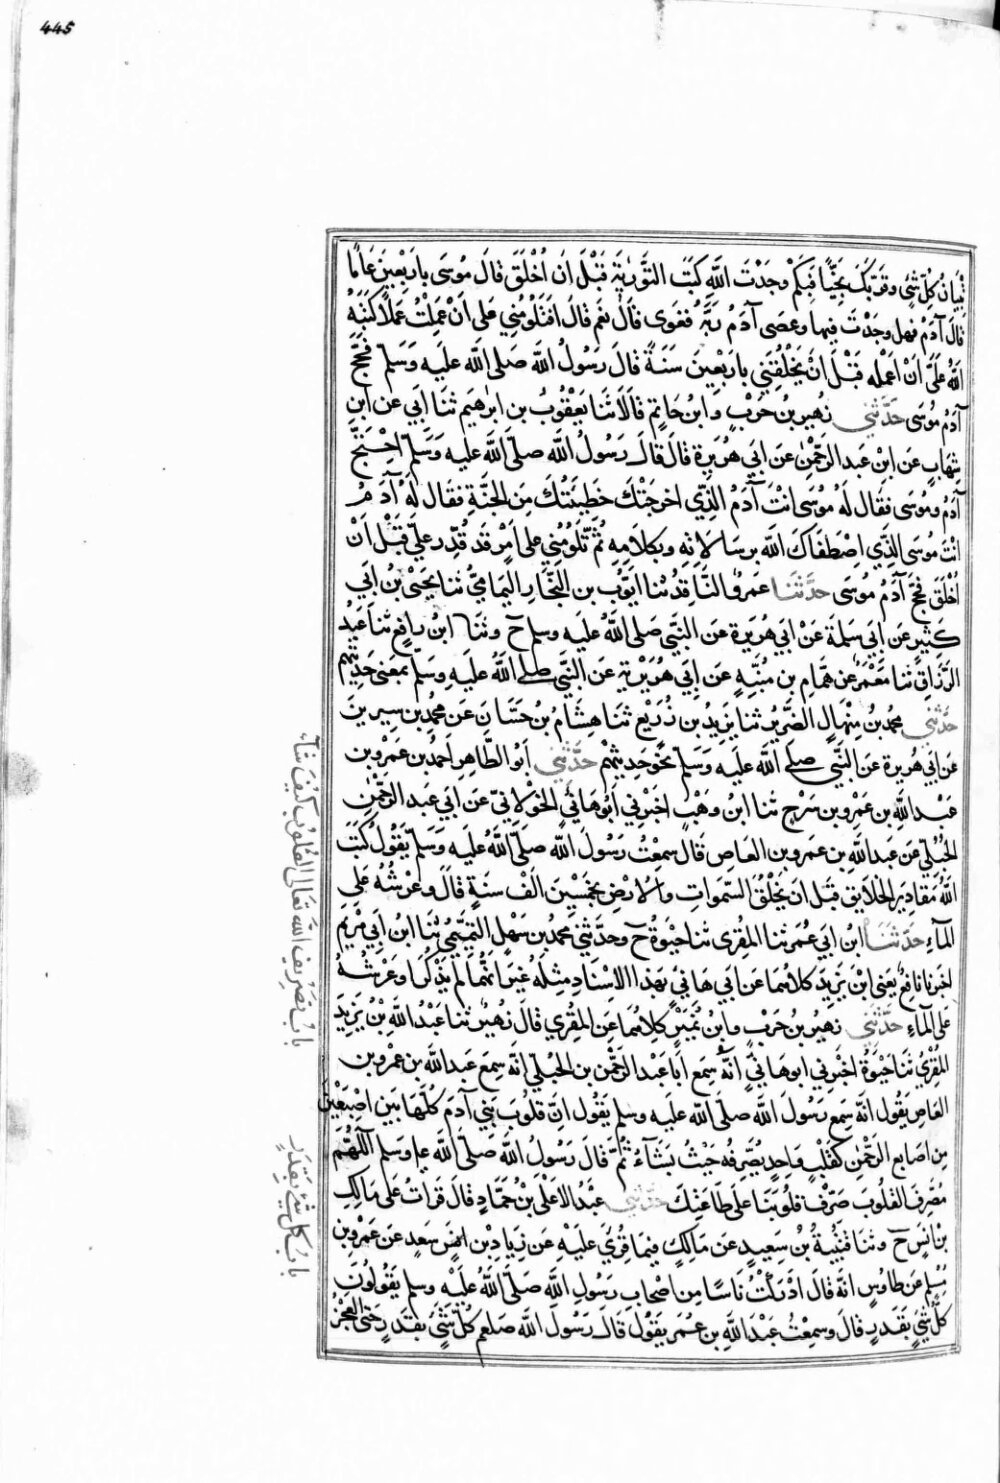 445
تبيان كل شئ وقربك نجيا فبكم وجدت الله كتب التورية قبل ان اخلق قال موسى باربعين عاما
قال آدم فهل وجدت فيها وعصى آدم ربه فغوى قال نعم قال افتلومني على ان عملت عملا كتبه
الله على ان اعمله قبل ان يخلقني باربعين سنة قال رسول الله صلى الله عليه وسلم فحج
آدم موسى حدثني زهير بن حرب وابن حاتم قالا ثنا يعقوب بن ابرهيم ثنا ابي عن ابن
شهاب عن ابن عبد الرحمن عن ابي هريرة قال قال رسول الله صلى الله عليه وسلم احتج
آدم وموسى فقال له موسى انت آدم الذي اخرجتك خطيئتك من الجنة فقال له آدم
انت موسى الذي اصطفاك الله برسالاته وبكلامه ثم تلومني على امر قد قدر علي قبل ان
اخلق فحج آدم موسى حدثنا عمرو الناقد ثنا ايوب بن النجار اليمامي ثنا يحيى بن ابي
كثير عن ابي سلمة عن ابي هريرة عن النبي صلى الله عليه وسلم ح وثنا ابن رافع ثنا عبد
الرزاق ثنا معمر عن همام بن منبه عن ابي هريرة عن النبي صلى الله عليه وسلم بمعنى حديثهم
حدثني محمد بن منهال الضرير ثنا يزيد بن زريع ثنا هشام بن حسان عن محمد بن سيرين
عن ابي هريرة عن النبي صلى الله عليه وسلم نحو حديثهم حدثني ابو الطاهر احمد بن عمرو بن
عبد الله بن عمرو بن سرح ثنا ابن وهب اخبرني ابو هانئ الخولاني عن ابي عبد الرحمن
الحبلي عن عبد الله بن عمرو بن العاص قال سمعت رسول الله صلى الله عليه وسلم يقول كتب
الله مقادير الخلايق قبل ان يخلق السموات والارض بخمسين الف سنة قال وعرشه على
الماء حدثنا ابن ابي عمر ثنا المقرى ثنا حيوة ح وحدثني محمد بن سهل التميمي ثنا ابن ابي مريم
اخبرنا نافع يعنى ابن يزيد كلاهما عن ابي هانئ بهذا الاسناد مثله غير انهما لم يذكرا وعرشه
على الماء حدثني زهير بن حرب وابن نمير كلاهما عن المقرى قال زهير ثنا عبد الله بن يزيد
المقرئ ثنا حيوة اخبرني ابو هانئ انه سمع ابا عبد الرحمن بن الحبلي انه سمع عبد الله بن عمرو بن
العاص يقول انه سمع رسول الله صلى الله عليه وسلم يقول ان قلوب بني آدم كلها بين اصبعين
من اصابع الرحمن كقلب واحد يصرفه حيث يشاء ثم قال رسول الله صلى الله عليه وسلم اللهم
مصرف القلوب صرف قلوبنا على طاعتك حدثني عبد الاعلى بن حماد قال قرات على مالك
بن انس ح وثنا قتيبة بن سعيد عن مالك فيما قرئ عليه عن زياد بن سعد عن عمرو بن
مسلم عن طاوس انه قال ادركت ناسا من اصحاب رسول الله صلى الله عليه وسلم يقولون
كل شئ بقدر قال وسمعت عبد الله بن عمر يقول قال رسول الله صلعم كل شئ بقدر حتى العجز
باب تصريف الله تعالى القلوب كيف شاء
باب كل شئ بقدر